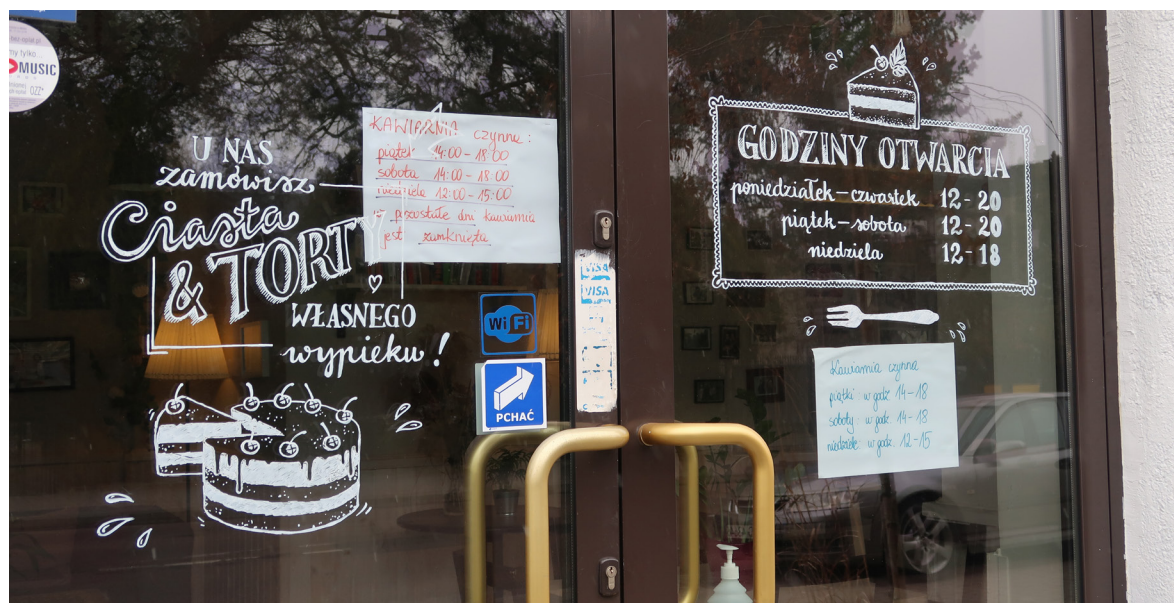 my tylko
MUSIC
U NAS
zamówisz
Ciasta
& TORTY
WŁASNEGO
wypieku!
KAWIARNIA czynna:
piątek 14:00 - 18:00
sobota 14:00 - 18:00
niedziela 12:00 - 15:00
w pozostałe dni kawiarnia
jest zamknięta
WiFi
PCHAĆ
VISA
VISA
GODZINY OTWARCIA
poniedziałek - czwartek 12 - 20
piątek - sobota 12 - 20
niedziela 12 - 18
Kawiarnia czynna
piątki w godz. 14-18
soboty w godz. 14-18
niedziele w godz. 12-15